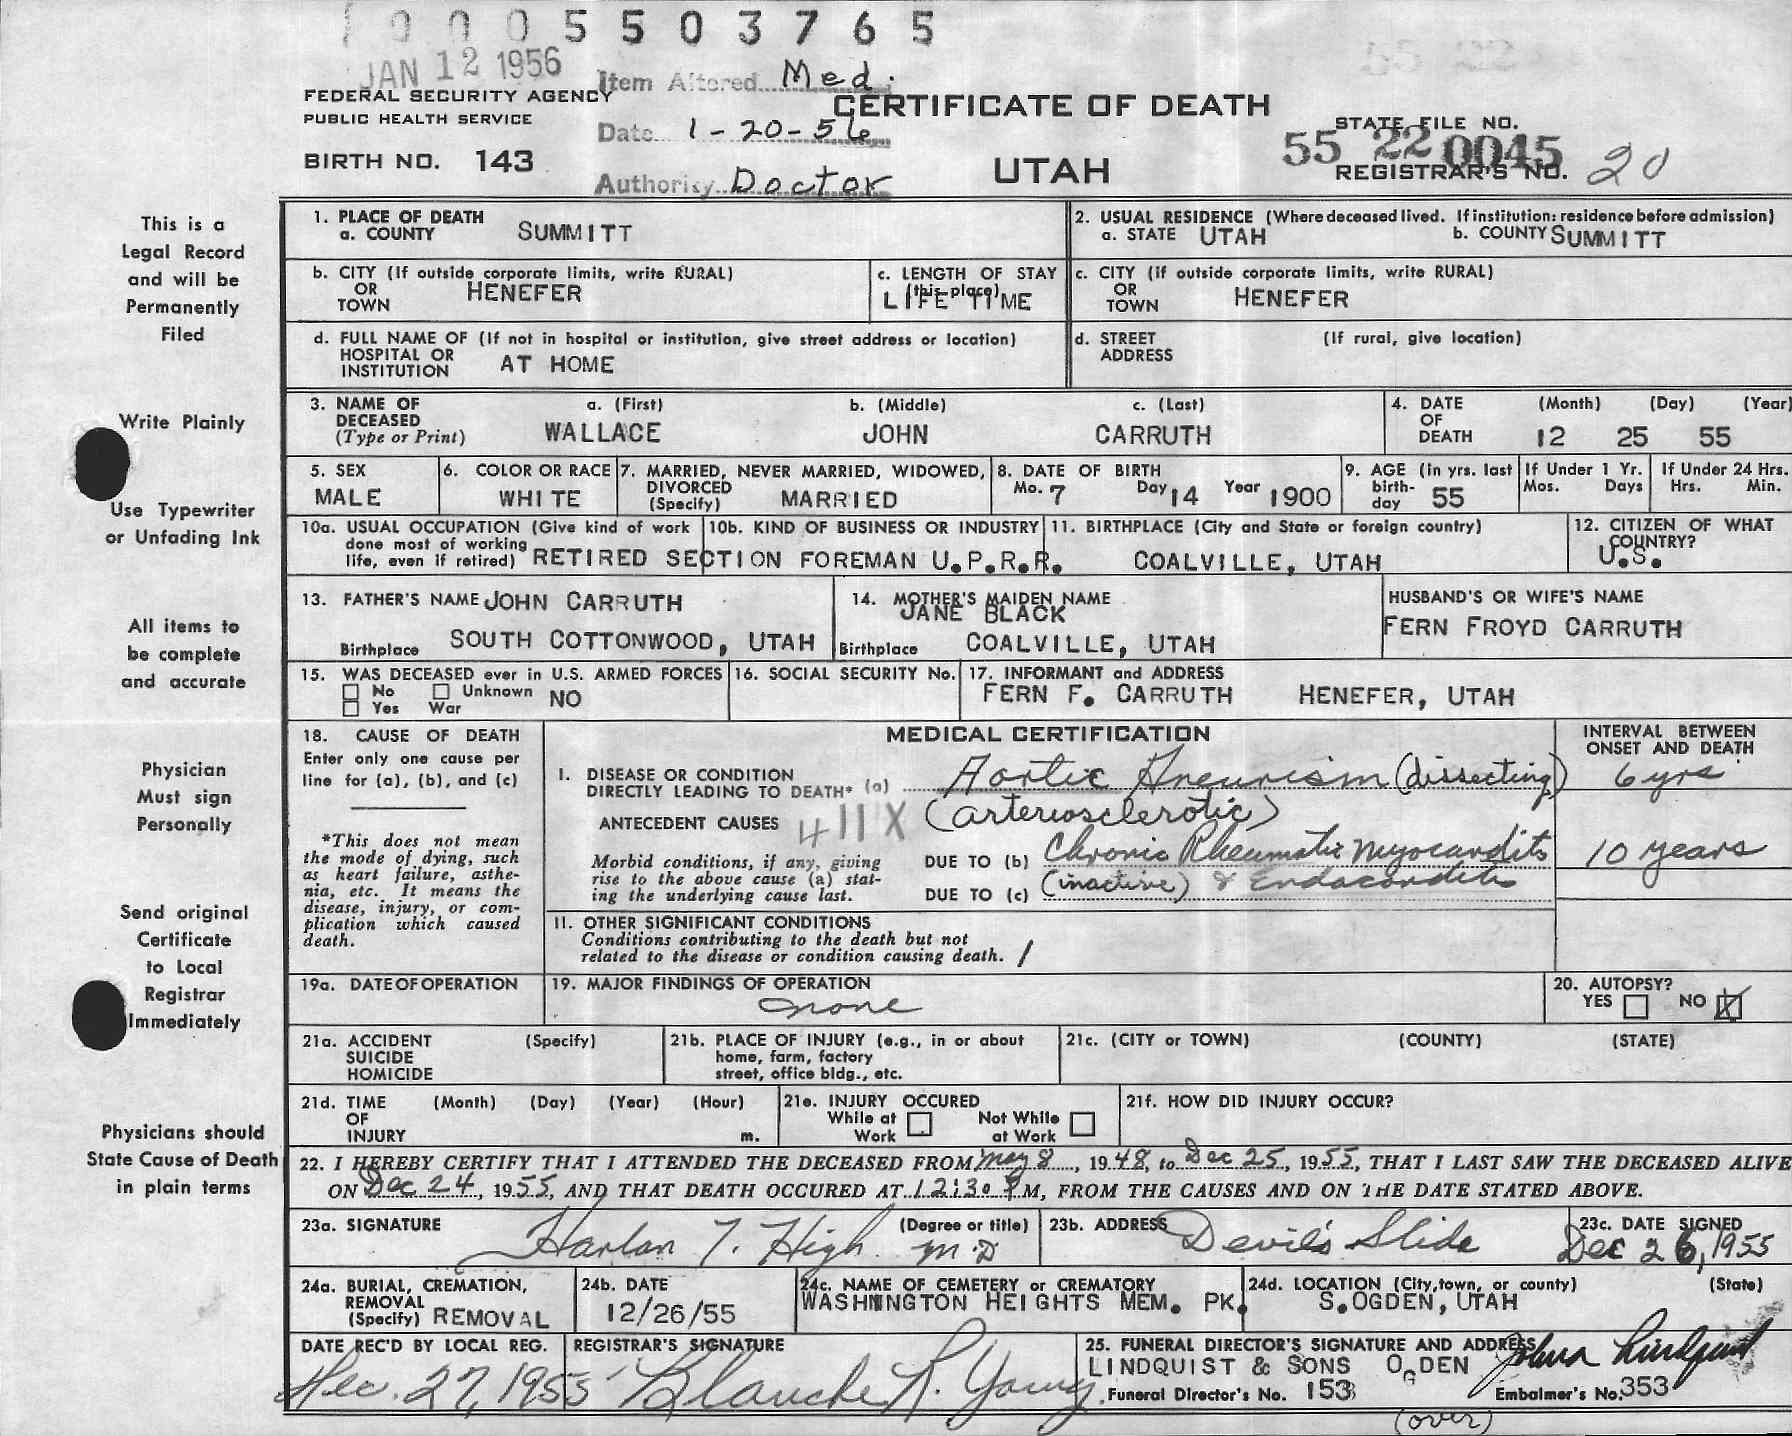 19005503765
JAN 12 1956
Item Altered Med.
FEDERAL SECURITY AGENCY
CERTIFICATE OF DEATH
PUBLIC HEALTH SERVICE
Date 1-20-56
STATE FILE NO.
55 22 0045
BIRTH NO. 143
UTAH
REGISTRAR'S NO. 20
Authority Doctor
This is a
Legal Record
and will be
Permanently
Filed
1. PLACE OF DEATH
a. COUNTY SUMMITT
2. USUAL RESIDENCE (Where deceased lived. If institution: residence before admission)
a. STATE UTAH b. COUNTY SUMMITT
b. CITY (If outside corporate limits, write RURAL)
OR
TOWN HENEFER
c. LENGTH OF STAY
(this place)
LIFE TIME
c. CITY (if outside corporate limits, write RURAL)
OR
TOWN HENEFER
d. FULL NAME OF (If not in hospital or institution, give street address or location)
HOSPITAL OR
INSTITUTION AT HOME
d. STREET (If rural, give location)
ADDRESS
Write Plainly
3. NAME OF a. (First) b. (Middle) c. (Last)
DECEASED
(Type or Print) WALLACE JOHN CARRUTH
4. DATE (Month) (Day) (Year)
OF
DEATH 12 25 55
Use Typewriter
or Unfading Ink
5. SEX
MALE
6. COLOR OR RACE
WHITE
7. MARRIED, NEVER MARRIED, WIDOWED,
DIVORCED
(Specify) MARRIED
8. DATE OF BIRTH
Mo. 7 Day 14 Year 1900
9. AGE (in yrs. last
birth-
day 55
If Under 1 Yr.
Mos. Days
If Under 24 Hrs.
Hrs. Min.
10a. USUAL OCCUPATION (Give kind of work
done most of working
life, even if retired) RETIRED SECTION FOREMAN
10b. KIND OF BUSINESS OR INDUSTRY
U.P.R.R.
11. BIRTHPLACE (City and State or foreign country)
COALVILLE, UTAH
12. CITIZEN OF WHAT
COUNTRY?
U.S.
All items to
be complete
and accurate
13. FATHER'S NAME JOHN CARRUTH
Birthplace SOUTH COTTONWOOD, UTAH
14. MOTHER'S MAIDEN NAME
JANE BLACK
Birthplace COALVILLE, UTAH
HUSBAND'S OR WIFE'S NAME
FERN FROYD CARRUTH
15. WAS DECEASED ever in U.S. ARMED FORCES
No Unknown NO
Yes War
16. SOCIAL SECURITY No.
17. INFORMANT and ADDRESS
FERN F. CARRUTH HENEFER, UTAH
Physician
Must sign
Personally
18. CAUSE OF DEATH
Enter only one cause per
line for (a), (b), and (c)
*This does not mean
the mode of dying, such
as heart failure, asthe-
nia, etc. It means the
disease, injury, or com-
plication which caused
death.
MEDICAL CERTIFICATION
INTERVAL BETWEEN
ONSET AND DEATH
I. DISEASE OR CONDITION
DIRECTLY LEADING TO DEATH* (a) Aortic Aneurism (dissecting) 6 yrs
ANTECEDENT CAUSES 411X (arteriosclerotic)
Morbid conditions, if any, giving
rise to the above cause (a) stat-
ing the underlying cause last.
DUE TO (b) Chronic Rheumatic myocarditis 10 years
DUE TO (c) (inactive) & Endocarditis
II. OTHER SIGNIFICANT CONDITIONS
Conditions contributing to the death but not
related to the disease or condition causing death. /
Send original
Certificate
to Local
Registrar
Immediately
19a. DATE OF OPERATION
19. MAJOR FINDINGS OF OPERATION
none
20. AUTOPSY?
YES NO X
21a. ACCIDENT (Specify)
SUICIDE
HOMICIDE
21b. PLACE OF INJURY (e.g., in or about
home, farm, factory
street, office bldg., etc.
21c. (CITY or TOWN) (COUNTY) (STATE)
21d. TIME (Month) (Day) (Year) (Hour)
OF
INJURY m.
21e. INJURY OCCURED
While at Not While
Work at Work
21f. HOW DID INJURY OCCUR?
Physicians should
State Cause of Death
in plain terms
22. I HEREBY CERTIFY THAT I ATTENDED THE DECEASED FROM May 8, 1948, to Dec 25, 1955, THAT I LAST SAW THE DECEASED ALIVE
ON Dec 24, 1955, AND THAT DEATH OCCURED AT 12:30 PM, FROM THE CAUSES AND ON THE DATE STATED ABOVE.
23a. SIGNATURE (Degree or title)
Harlan T. High M.D
23b. ADDRESS
Devil's Slide
23c. DATE SIGNED
Dec 26, 1955
24a. BURIAL, CREMATION,
REMOVAL
(Specify) REMOVAL
24b. DATE
12/26/55
24c. NAME OF CEMETERY or CREMATORY
WASHINGTON HEIGHTS MEM. PK.
24d. LOCATION (City, town, or county) (State)
S. OGDEN, UTAH
DATE REC'D BY LOCAL REG.
Dec. 27, 1955
REGISTRAR'S SIGNATURE
Blanche R. Young
25. FUNERAL DIRECTOR'S SIGNATURE AND ADDRESS
LINDQUIST & SONS OGDEN John Lindquist
Funeral Director's No. 153 Embalmer's No. 353
(over)